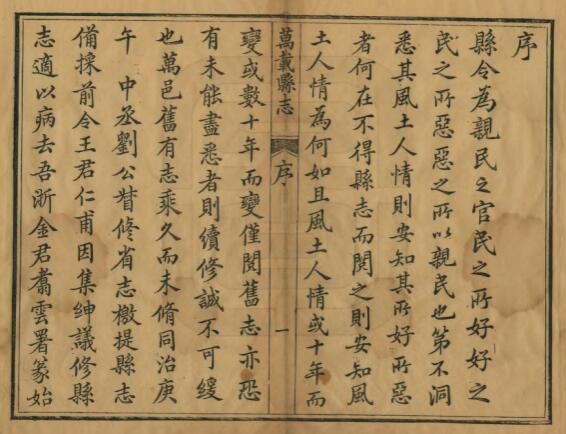 序
縣令為親民之官民之所好好之
民之所惡惡之所以親民也第不洞
悉其風土人情則安知其所好所惡
者何在不得縣志而閱之則安知風
土人情為何如且風土人情或十年而
萬載縣志
序
一
變或數十年而變僅閱舊志亦恐
有未能盡悉者則續修誠不可緩
也萬邑舊有志乘久而未脩同治庚
午 中丞劉公督修省志檄提縣志
備採前令王君仁甫因集紳議修縣
志適以病去吾浙金君矞雲署篆始